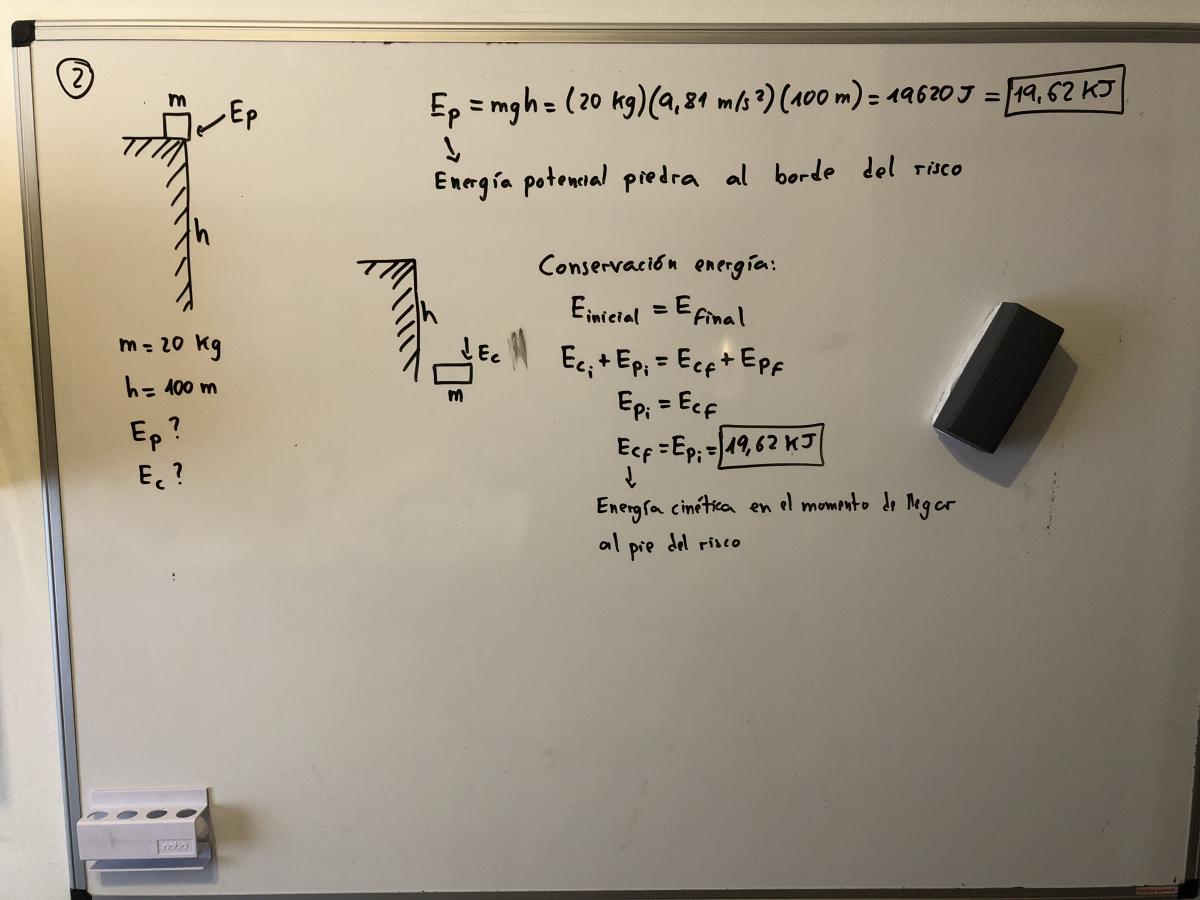 2
m
Ep
h
m = 20 Kg
h = 100 m
Ep?
Ec?
Ep = mgh = (20 kg)(9,81 m/s²)(100 m) = 19620 J = 19,62 KJ
↓
Energía potencial piedra al borde del risco
h
Ec
m
Conservación energía:
Einicial = Efinal
Eci + Epi = Ecf + Epf
Epi = Ecf
Ecf = Epi = 19,62 KJ
↓
Energía cinética en el momento de llegar
al pie del risco
nobo